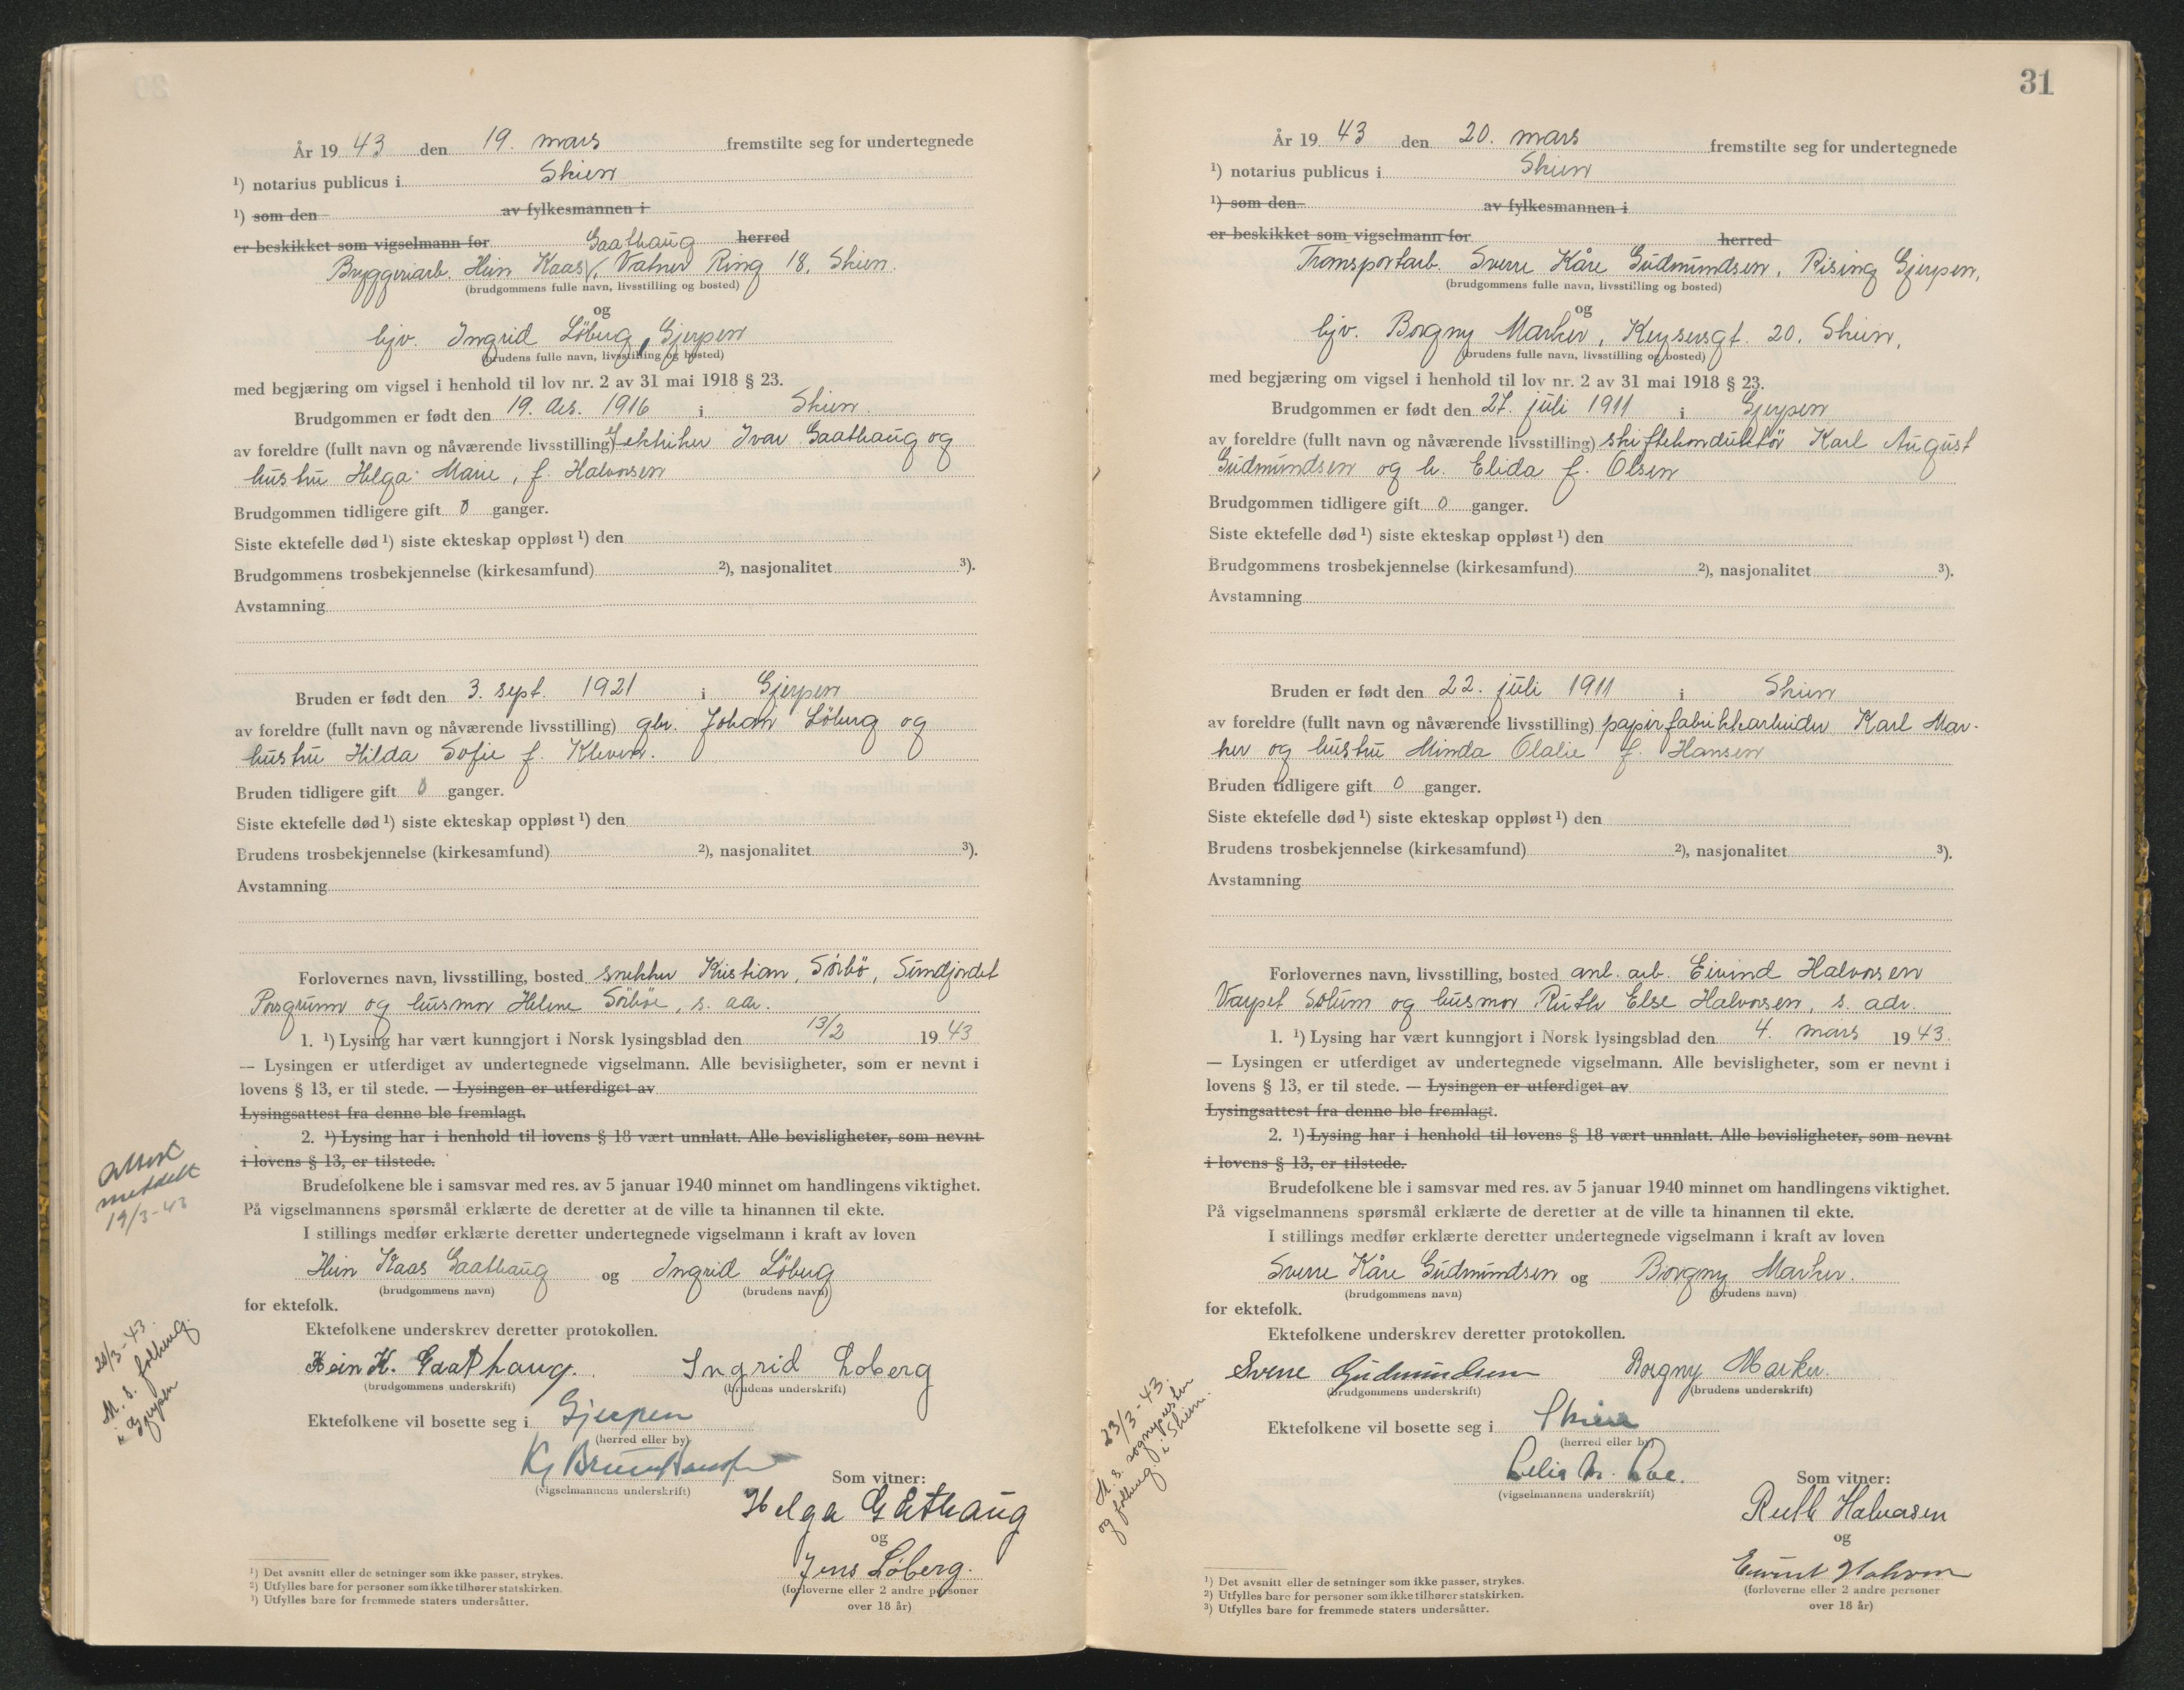 År 19 43 den 19. mars fremstilte seg for undertegnede
¹) notarius publicus i Skien
¹) som den av fylkesmannen i
er beskikket som vigselmann for Gaathaug herred
Bryggeriarb. Hein Kaas √, Vatner Ring 18, Skien.
(brudgommens fulle navn, livsstilling og bosted)
og
hjv. Ingrid Löberg, Gjerpen
(brudens fulle navn, livsstilling og bosted)
med begjæring om vigsel i henhold til lov nr. 2 av 31 mai 1918 § 23.
Brudgommen er født den 19. des. 1916 i Skien.
av foreldre (fullt navn og nåværende livsstilling) elektriker Ivar Gaathaug og
hustru Helga Marie, f. Halvorsen
Brudgommen tidligere gift 0 ganger.
Siste ektefelle død ¹) siste ekteskap oppløst ¹) den
Brudgommens trosbekjennelse (kirkesamfund) ²), nasjonalitet ³).
Avstamning
Bruden er født den 3. sept. 1921 i Gjerpen
av foreldre (fullt navn og nåværende livsstilling) gbr. Johan Löberg og
hustru Hilda Sofie f. Kleven.
Bruden tidligere gift 0 ganger.
Siste ektefelle død ¹) siste ekteskap oppløst ¹) den
Brudens trosbekjennelse (kirkesamfund) ²), nasjonalitet ³).
Avstamning
Forlovernes navn, livsstilling, bosted snekker Kristian Sörbö, Sundjordet
Porsgrunn og husmor Helene Sörböe, s. adr.
1. ¹) Lysing har vært kunngjort i Norsk lysingsblad den 13/2 19 43
— Lysingen er utferdiget av undertegnede vigselmann. Alle bevisligheter, som er nevnt i
lovens § 13, er til stede. — Lysingen er utferdiget av
Lysingsattest fra denne ble fremlagt.
2. ¹) Lysing har i henhold til lovens § 18 vært unnlatt. Alle bevisligheter, som nevnt
i lovens § 13, er tilstede.
Brudefolkene ble i samsvar med res. av 5 januar 1940 minnet om handlingens viktighet.
På vigselmannens spørsmål erklærte de deretter at de ville ta hinannen til ekte.
I stillings medfør erklærte deretter undertegnede vigselmann i kraft av loven
Hein Kaas Gaathaug og Ingrid Löberg
(brudgommens navn) (brudens navn)
for ektefolk.
Ektefolkene underskrev deretter protokollen.
Hein K. Gaathaug. Ingrid Løberg
(brudgommens underskrift) (brudens underskrift)
Ektefolkene vil bosette seg i Gjerpen
(herred eller by)
(vigselmannens underskrift)
Som vitner:
Helga Gathaug
og
Jens Løberg.
(forloverne eller 2 andre personer
over 18 år)
¹) Det avsnitt eller de setninger som ikke passer, strykes.
²) Utfylles bare for personer som ikke tilhører statskirken.
³) Utfylles bare for fremmede staters undersåtter.
Attest
meddelt
19/3-43
20/3-43.
M. s. folkereg.
i Gjerpen
31
År 19 43 den 20. mars fremstilte seg for undertegnede
¹) notarius publicus i Skien
¹) som den av fylkesmannen i
er beskikket som vigselmann for herred
Transportarb. Sverre Kåre Gudmundsen, Rising Gjerpen,
(brudgommens fulle navn, livsstilling og bosted)
og
hjv. Borgny Marker, Keysersgt. 20, Skien,
(brudens fulle navn, livsstilling og bosted)
med begjæring om vigsel i henhold til lov nr. 2 av 31 mai 1918 § 23.
Brudgommen er født den 27. juli 1911 i Gjerpen
av foreldre (fullt navn og nåværende livsstilling) skiftekonduktör Karl August
Gudmundsen og h. Elida f. Olsen
Brudgommen tidligere gift 0 ganger.
Siste ektefelle død ¹) siste ekteskap oppløst ¹) den
Brudgommens trosbekjennelse (kirkesamfund) ²), nasjonalitet ³).
Avstamning
Bruden er født den 22. juli 1911 i Skien
av foreldre (fullt navn og nåværende livsstilling) papirfabrikkarbeider Karl Mar-
ker og hustru Minda Olalie f. Hansen
Bruden tidligere gift 0 ganger.
Siste ektefelle død ¹) siste ekteskap oppløst ¹) den
Brudens trosbekjennelse (kirkesamfund) ²), nasjonalitet ³).
Avstamning
Forlovernes navn, livsstilling, bosted anl. arb. Eivind Halvorsen
Varpet Solum og husmor Ruth Else Halvorsen, s. adr.
1. ¹) Lysing har vært kunngjort i Norsk lysingsblad den 4. mars 19 43.
— Lysingen er utferdiget av undertegnede vigselmann. Alle bevisligheter, som er nevnt i
lovens § 13, er til stede. — Lysingen er utferdiget av
Lysingsattest fra denne ble fremlagt.
2. ¹) Lysing har i henhold til lovens § 18 vært unnlatt. Alle bevisligheter, som nevnt
i lovens § 13, er tilstede.
Brudefolkene ble i samsvar med res. av 5 januar 1940 minnet om handlingens viktighet.
På vigselmannens spørsmål erklærte de deretter at de ville ta hinannen til ekte.
I stillings medfør erklærte deretter undertegnede vigselmann i kraft av loven
Sverre Kåre Gudmundsen og Borgny Marker.
(brudgommens navn) (brudens navn)
for ektefolk.
Ektefolkene underskrev deretter protokollen.
Sverre Gudmundsen Borgny Marker.
(brudgommens underskrift) (brudens underskrift)
Ektefolkene vil bosette seg i Skien
(herred eller by)
(vigselmannens underskrift)
Som vitner:
Ruth Halvorsen
og
Eivind Halvorsen
(forloverne eller 2 andre personer
over 18 år)
¹) Det avsnitt eller de setninger som ikke passer, strykes.
²) Utfylles bare for personer som ikke tilhører statskirken.
³) Utfylles bare for fremmede staters undersåtter.
23/3-43.
M. s. sogneprester
og folkereg. i Skien.